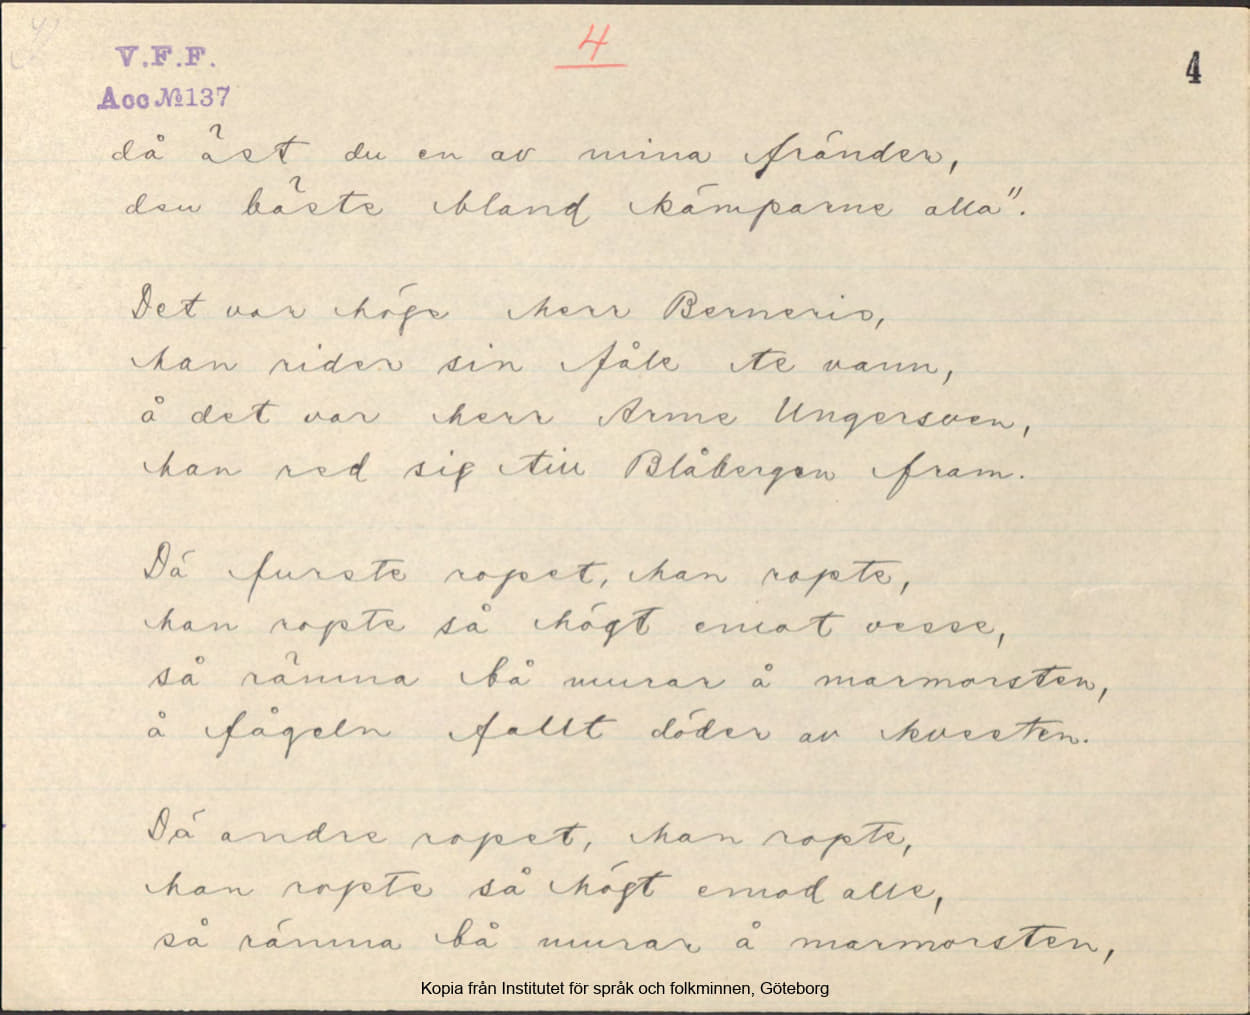 V.F.F.
Acc №137
4
4
då äst du en av mina fränder,
den bäste bland kämparne alla".
Det var höge herr Berneris,
han rider sin fåle te vann,
å det var herr Arme Ungersven,
han red sig till Blåbergen fram.
Dä furste ropet, han ropte,
han ropte så högt emot vesse,
så rämna bå murar å marmorsten,
å fågeln fallt döder av kvesten.
Dä andre ropet, han ropte,
han ropte så högt emod alle,
så rämna bå murar å marmorsten,
Kopia från Institutet för språk och folkminnen, Göteborg